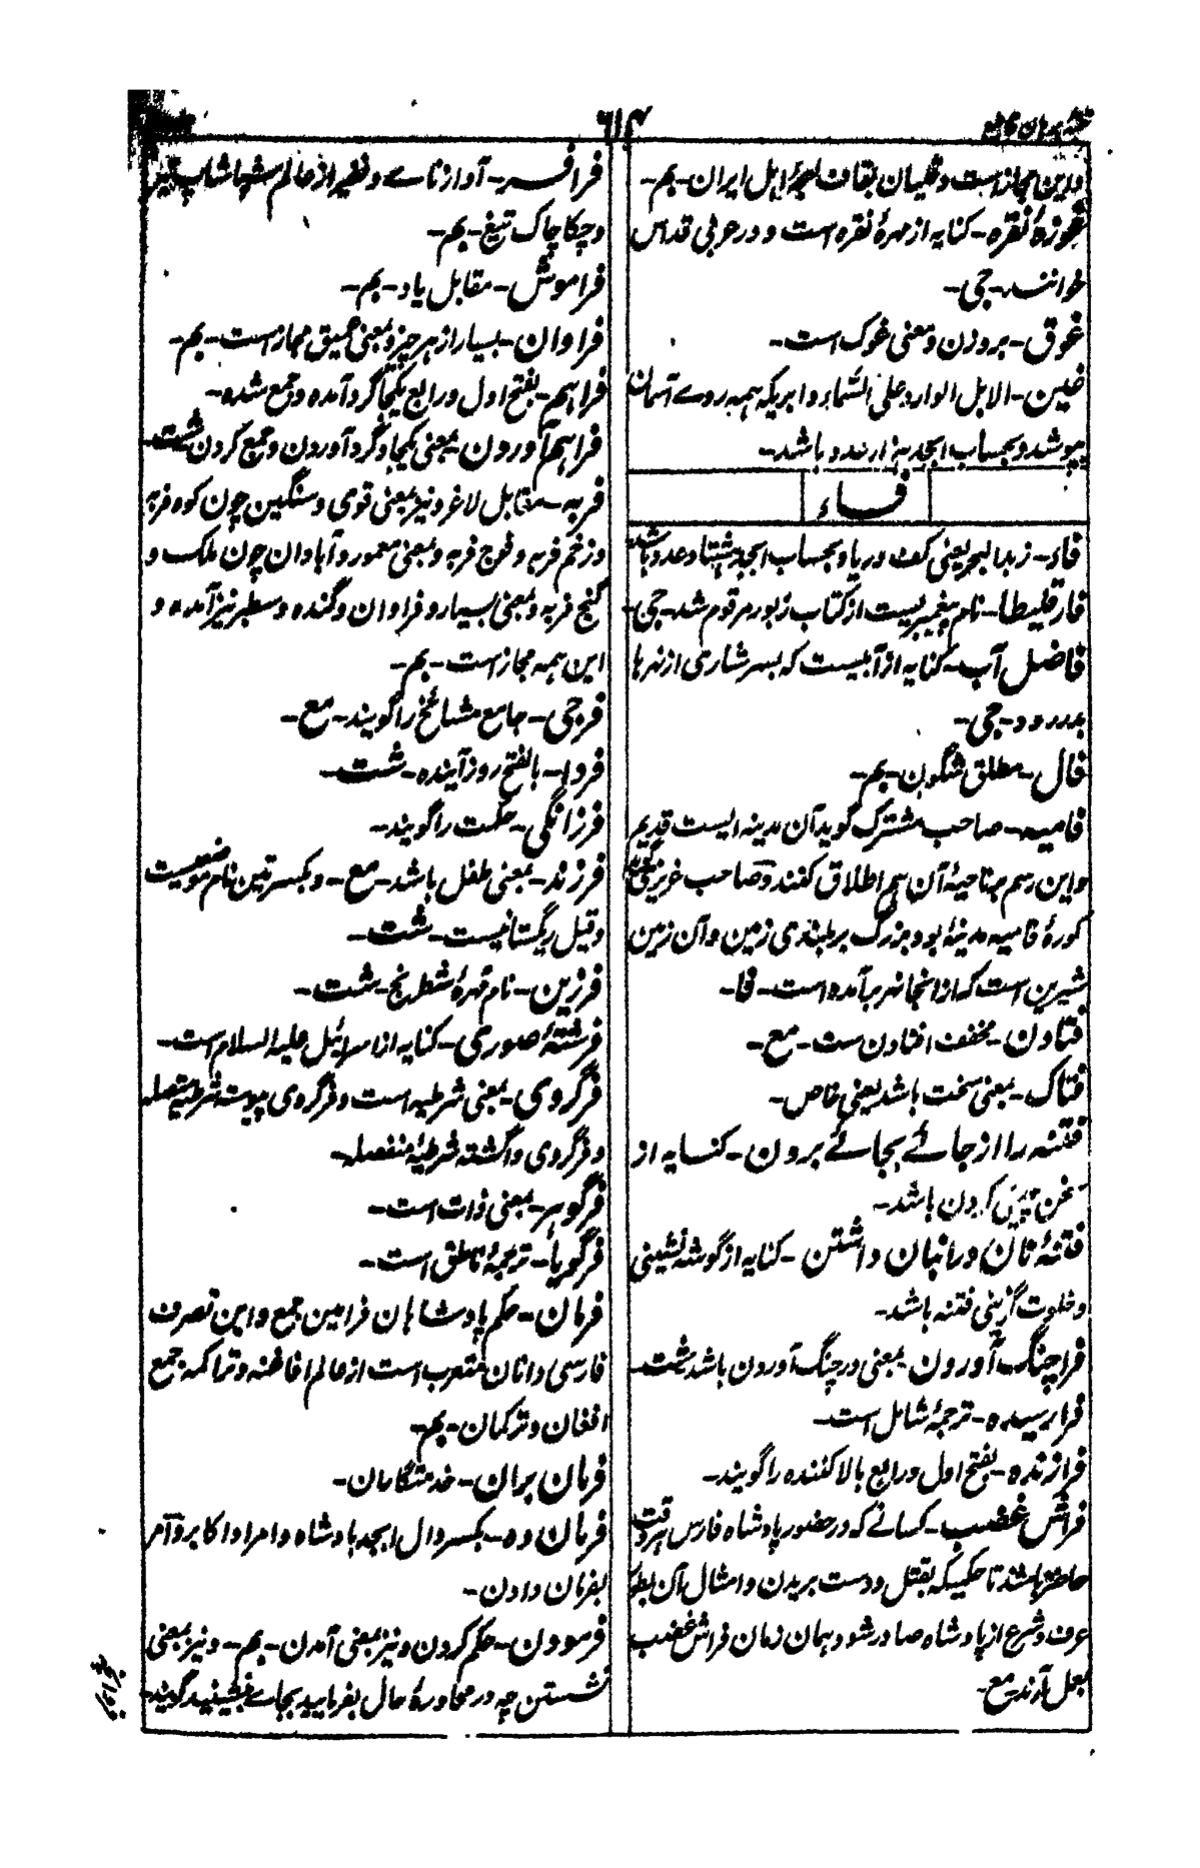 ۶۱۴
واین مجازست وقلیان بقاف لهجهٔ اهل ایران-بم-
غوزهٔ نقره-کنایه از مهرهٔ نقره است و در عربی قداس
خوانند-جی-
غوق-بروزن ومعنی غوک است-
غین-الابل الوارد علی السماء وابریکه همه روے آسمان
بپوشد وبحساب ابجد هزار عدد باشد-
فاء
فاء-زبد البحر یعنی کف دریا وبحساب ابجد هشتاد عدد باشد
فارقلیطا-نام پیغمبریست از کتاب زبور مرقوم شد-جی-
فاضل آب-کنایه از آبیست که بسرشاری از نهرها
بدر رود-جی-
فال-مطلق شگون-بم-
فامیه-صاحب مشترک گوید آن مدینه ایست قدیم
واین رسم بناحیهٔ آن هم اطلاق کنند وصاحب عزیزی گوید
کورهٔ فامیه مدینهٔ بود بزرگ بر بلندی زمین وآن زمین
شیرین است که از انجا نهر برآمده است-فا-
فتادن-مخفف افتادن ست-مع-
فتاک-بمعنی سخت باشد یعنی خاص-
فتنه را از جائے بجائے بردن-کنایه از
سخن چینی کردن باشد-
فتنهٔ نان در انبان داشتن-کنایه از گوشه نشینی
وخلوت گزینی فتنه باشد-
فراچنگ آوردن-بمعنی در چنگ آوردن باشد شت-
فرا رسیده-ترجمهٔ شامل است-
فرازنده-بفتح اول ورابع بالا کننده را گویند-
فراش غضب-کسانے که در حضور پادشاه فارس هر وقت
حاضر باشند تا حکمیکه بقتل ودست بریدن وامثال آن بطور
عرف وشرع از پادشاه صادر شود همان زمان فراش غضب
بعمل آرند-مع-
فرافر-آواز نامے ونظیر از عالم شپاشاپ تیر
وچکاچاک تیغ-بم-
فراموش-مقابل یاد-بم-
فراوان-بسیار از هر چیز وبمعنی عمیق مجاز است-بم-
فراهم-بفتح اول ورابع یکجا گرد آمده وجمع شده-
فراهم آوردن-بمعنی یکجا وگرد آوردن وجمع کردن شت-
فربه-مقابل لاغر ونیز بمعنی قوی وسنگین چون کوه فربه
وزخم فربه وفوج فربه وبمعنی معمور وآبادان چون ملک و
گنج فربه وبمعنی بسیار وفراوان وگنده وسطبر نیز آمده و
این همه مجاز است-بم-
فرجی-جامع مشائخ را گویند-مع-
فردا-بالفتح روز آینده-شت-
فرزانگی-حکمت را گویند-
فرزند-بمعنی طفل باشد-مع-وبکسرتین نام موضعیست
وقیل ریگستانیست-شت-
فرزین-نام مهرهٔ شطرنج-شت-
فرشتهٔ صوری-کنایه از اسرائیل علیه السلام است-
فرگردی-بمعنی شرطیه است وفرگردی پیوسته شرطیه متصله
وفرگردی واگشته شرطیهٔ منفصله-
فرگوهر-بمعنی ذات است-
فرگویا-ترجمهٔ ناطق است-
فرمان-حکم پادشاهان فرامین جمع واین تصرف
فارسی دانان متعرب است از عالم افاغنه وتراکمه جمع
افغان وترکمان-بم-
فرمان بران-خدمتگاران-
فرمان ده-بکسر دال ابجد پادشاه وامرا واکابر وآمر
بفرمان دادن-
فرمودن-حکم کردن ونیز بمعنی آمدن-بم-ونیز بمعنی
نشستن چه در محاورهٔ حال بفرمایید بجاے بنشینید گویند-